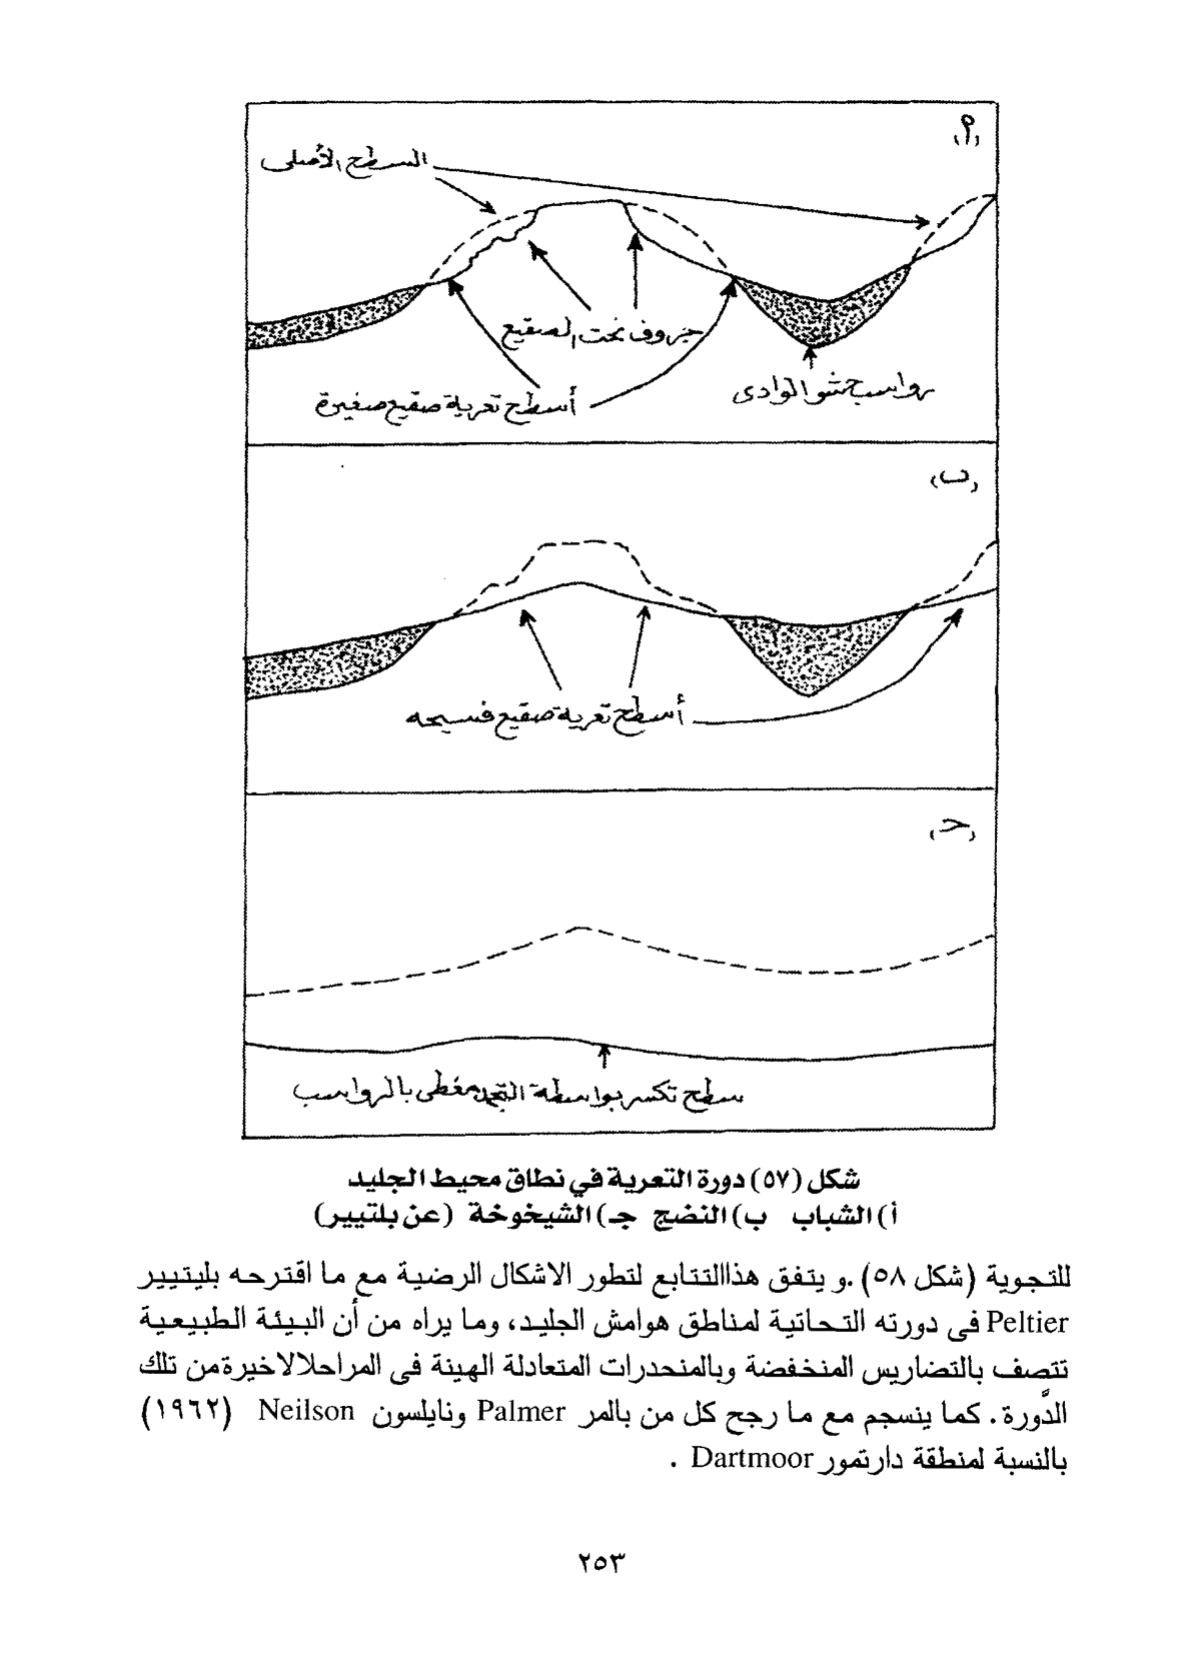 (أ)
السطح الأصلى
جروف نحت الصقيع
رواسب حشو الوادى
أسطح تعرية صقيع صغيرة
(ب)
أسطح تعرية صقيع فسيحه
(حـ)
سطح تكسر بواسطة التجمد مغطى بالرواسب
شكل (٥٧) دورة التعرية في نطاق محيط الجليد
أ) الشباب ب) النضج جـ) الشيخوخة (عن بلتيير)
للتجوية (شكل ٥٨) .و يتفق هذاالتتابع لتطور الاشكال الرضية مع ما اقترحه بليتيير
Peltier فى دورته التحاتية لمناطق هوامش الجليد، وما يراه من أن البيئة الطبيعية
تتصف بالتضاريس المنخفضة وبالمنحدرات المتعادلة الهينة فى المراحلالاخيرةمن تلك
الدَّورة . كما ينسجم مع ما رجح كل من بالمر Palmer ونايلسون Neilson (١٩٦٢)
بالنسبة لمنطقة دارتمور Dartmoor .
٢٥٣